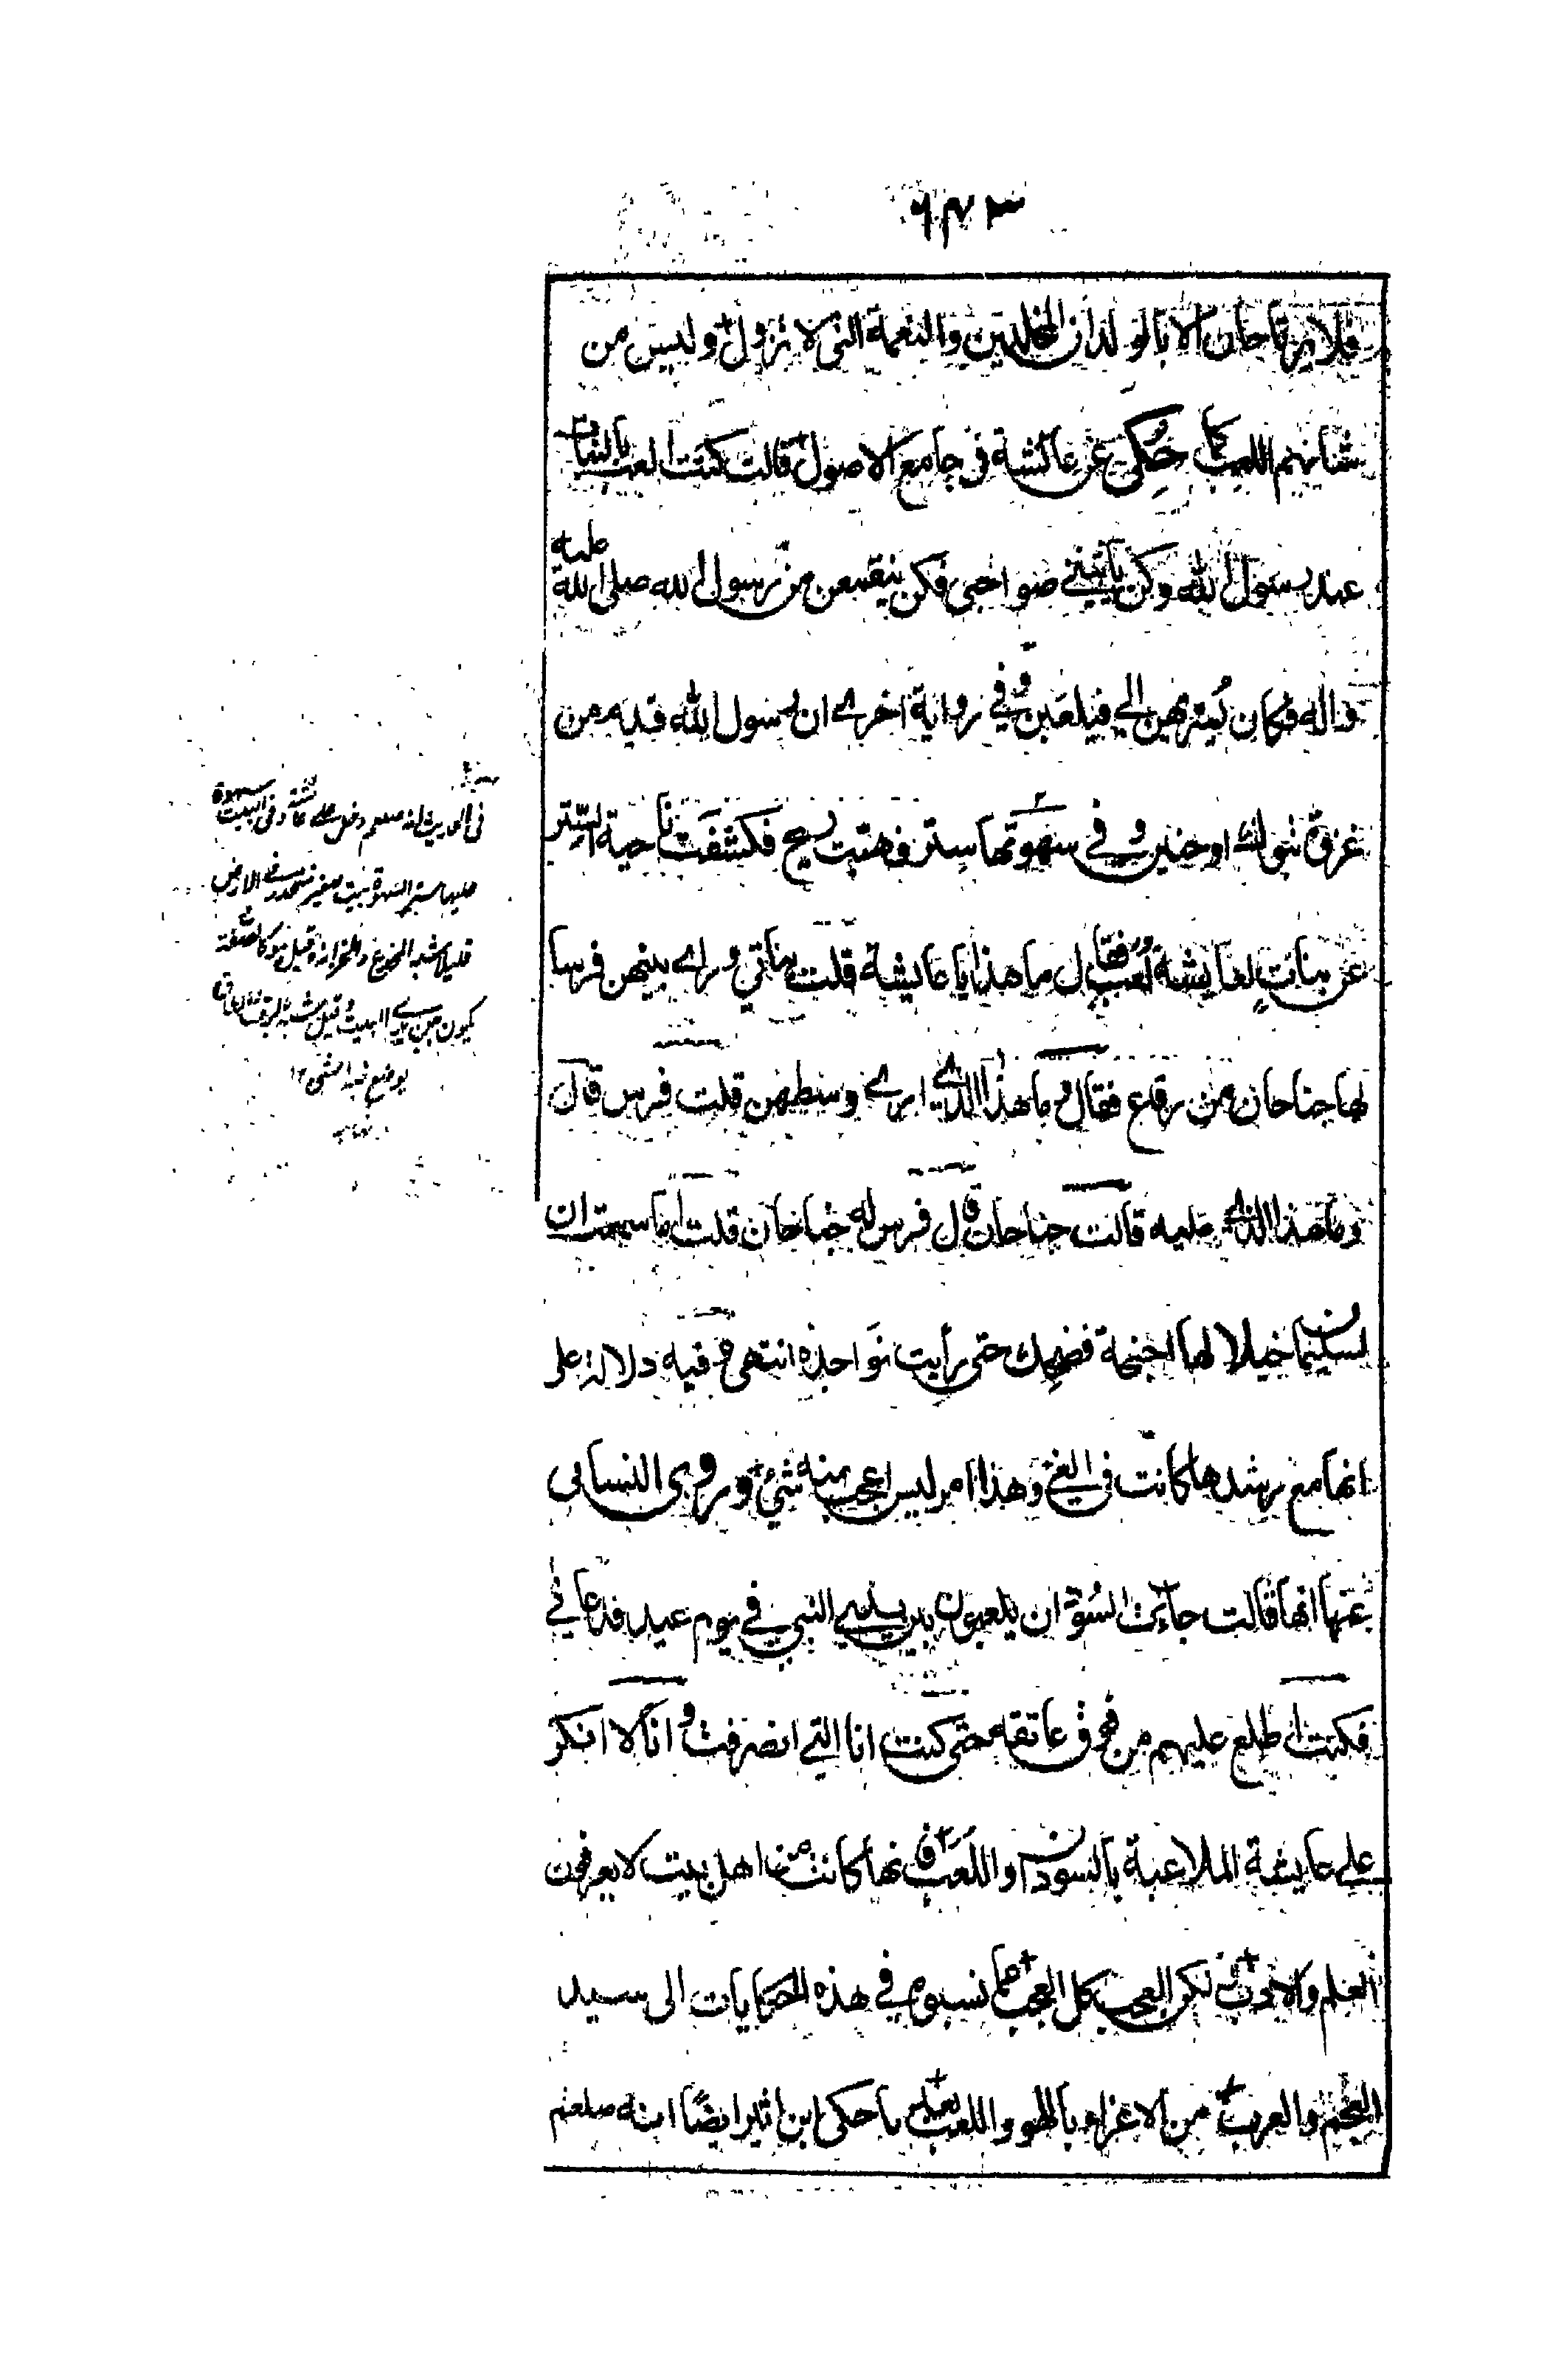 ٦٧٣
فلا يرتاحان الا بالولدان المخلدين والنعمة التي لا تزول وليس من
شانهم اللعب كما حُكي عن عائشة في جامع الاصول قالت كنت العب بالبنات
عند رسول الله وكن يأتيني صواحبي فكن ينقمعن من رسول الله صلى الله عليه
واله فكان يُسربهن الي فيلعبن وفي رواية اخرى ان رسول الله قدم من
غزوة تبوك او حنين وفي سهوتها سِتر فهبّت ريح فكشفت ناحية السِّتر
عن بناتٍ لعايشة لُعبٍ فقال ما هذا يا عايشة قلت بناتي وراى بينهن فرسا
لها جناحان من رقاع فقال وما هذا الذي ارى وسطهن قلت فرس قال
وما هذا الذي عليه قالت جناحان قال فرس له جناحان قلت اما سمعت ان
لسليمان خيلا لها اجنحة فضحك حتى رأيت نواجذه انتهى وفيه دلالة على
انها مع رشدها كانت في الغي وهذا امر ليس اعجب منه شيء وروى النسائي
عنها انها قالت جاءت السودان يلعبون بين يدي النبي في يوم عيد فدعاني
فكنت اطلع عليهم من فوق عاتقه حتى كنت انا التي انصرفت وانا لا انكر
على عايشة الملاعبة بالسودان او اللُعَب فانها كانت من اهل بيت لا يعرفون
العلم والادب لكن العجب كل العجب مما نسبوه في هذه الحكايات الى سيد
العجم والعرب من الاغراء باللهو واللعب بعد ما حكى ابن اثير ايضًا انه صلعم
في الحديث انه صلعم دخل على عائشة وفي البيت سهوة
عليها ستر السهوة بيت صغير منحدر في الارض
قليلا شبه المخدع والخزانة وقيل هو كالصفة
يكون بين يدي البيت وقيل شبه الرف والطاق
يوضع فيه الشيء ١٢
نهايه